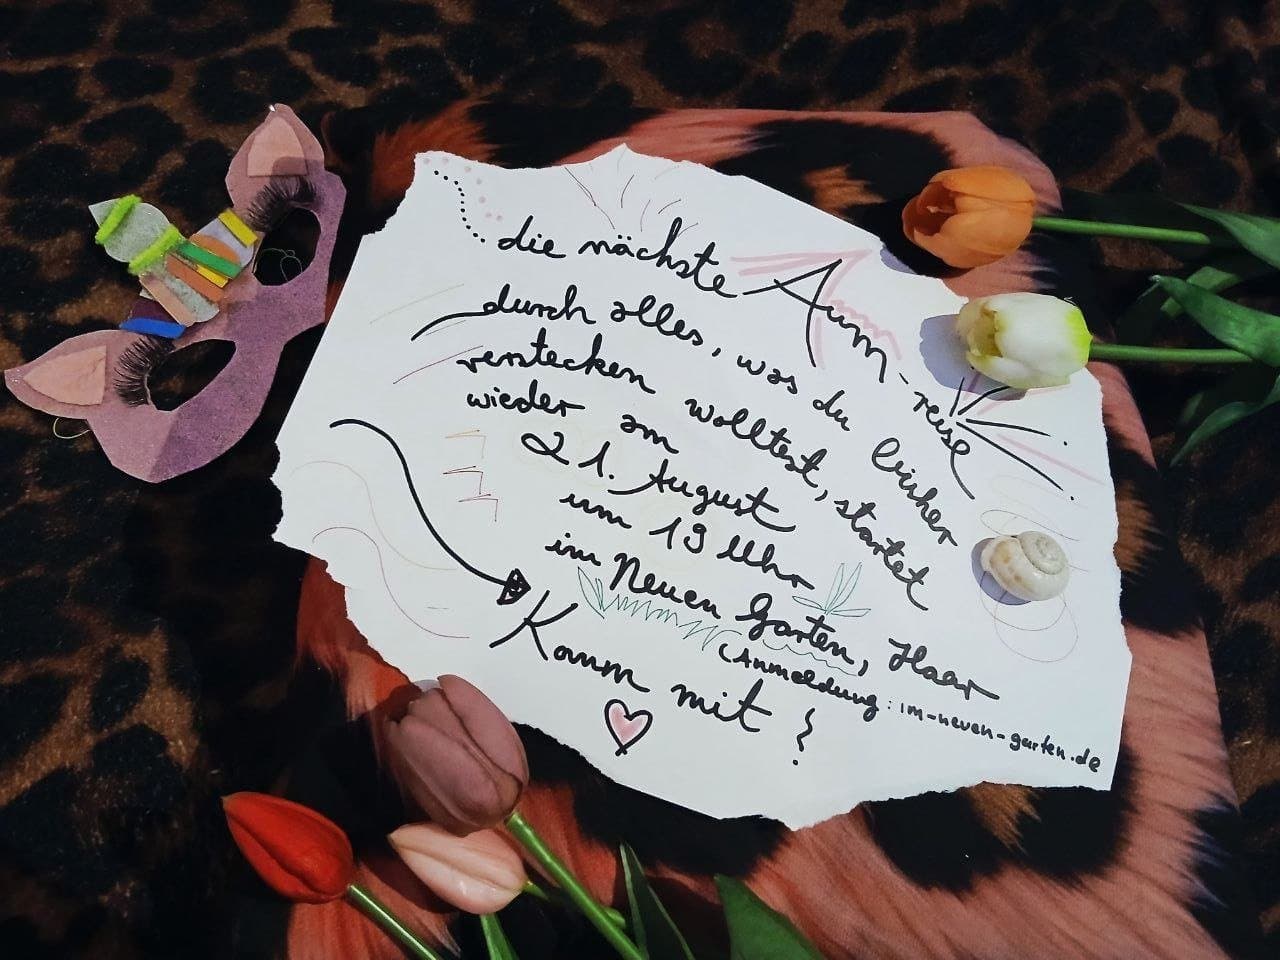 die nächste Aum-reise
durch alles, was du bisher
verstecken wolltest, startet
wieder am
21. August
um 19 Uhr
im Neuen Garten, Haar
(Anmeldung: im-neuen-garten.de
Komm mit!